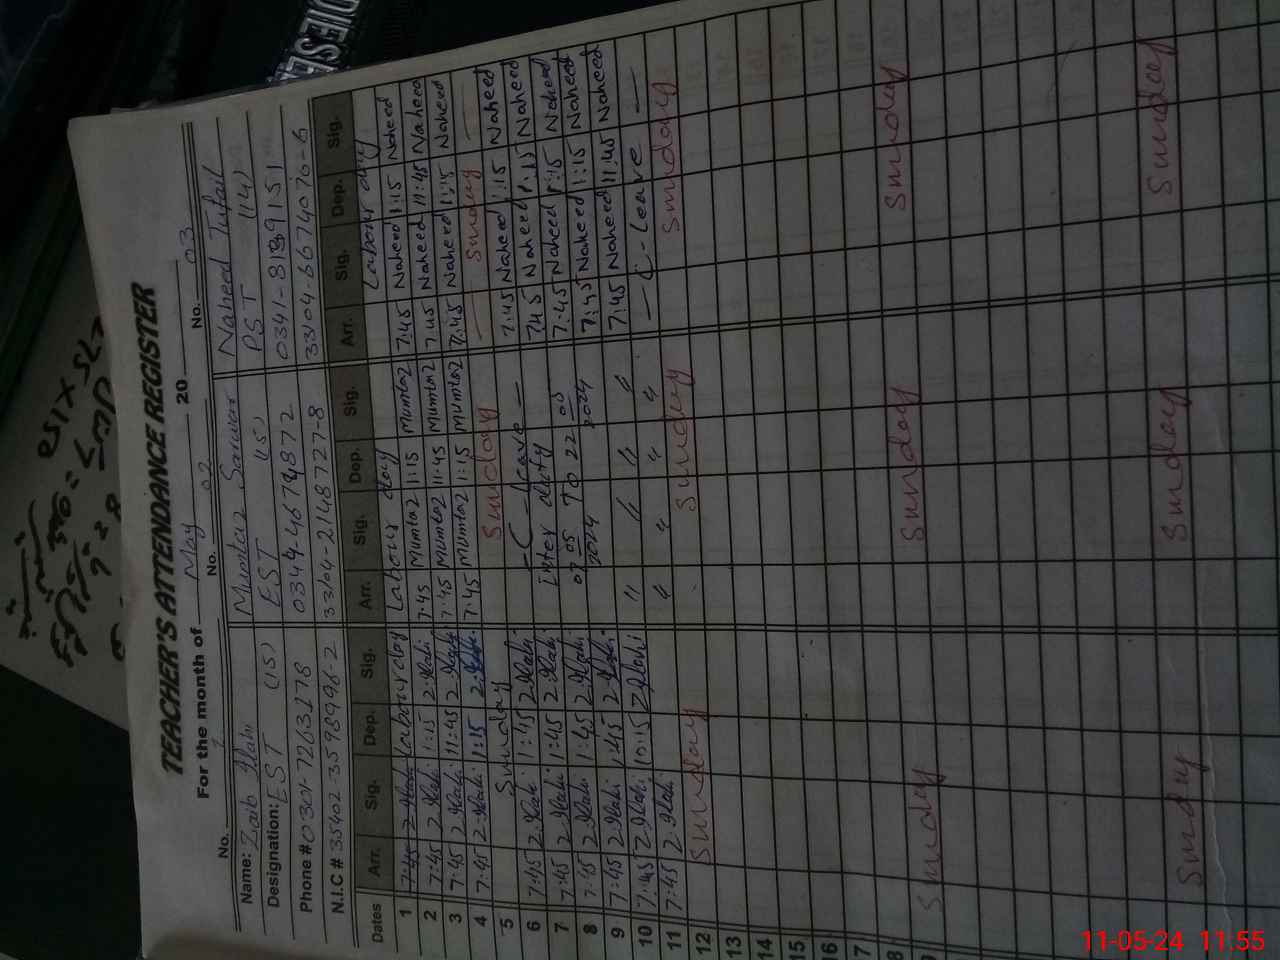 DIESEL
TEACHER'S ATTENDANCE REGISTER
For the month of May 20
No. 1 No. 02 No. 03
Name: Zaib Elahi Mumtaz Sarwar Naheed Tufail
Designation: EST (15) EST (15) PST (14)
Phone # 0301-7263278 0344-4674872
N.I.C # 35402-3598996-2 33104-2148727-8 33104-6674070-6
Dates Arr. Sig. Dep. Sig. Arr. Sig. Dep. Sig. Arr. Sig. Dep. Sig.
1 7:45 Z.Elahi Labour day Labour day Labour day
2 7:45 Z.Elahi 1:15 Z.Elahi 7:45 Mumtaz 1:15 Mumtaz 7:45 Naheed 1:15 Naheed
3 7:45 Z.Elahi 11:45 Z.Elahi 7:45 Mumtaz 11:45 Mumtaz 7:45 Naheed 11:45 Naheed
4 7:45 Z.Elahi 1:15 Z.Elahi 7:45 Mumtaz 1:15 Mumtaz 7:45 Naheed 1:15 Naheed
5 Sunday Sunday Sunday
6 7:45 Z.Elahi 1:45 Z.Elahi — C - Leave — 7:45 Naheed 1:15 Naheed
7 7:45 Z.Elahi 1:45 Z.Elahi Inter duty 7:45 Naheed 1:15 Naheed
8 7:45 Z.Elahi 1:45 Z.Elahi 07 05 2024 TO 22 05 2024 7:45 Naheed 1:15 Naheed
9 7:45 Z.Elahi 1:45 Z.Elahi 7:45 Naheed 1:15 Naheed
10 7:45 Z.Elahi 10:15 Z.Elahi " " " " 7:45 Naheed 11:45 Naheed
11 7:45 Z.Elahi " " " " — C - Leave —
12 Sunday Sunday Sunday
13
14
15
16
17
8
Sunday Sunday Sunday
Sunday Sunday Sunday
11-05-24 11:55